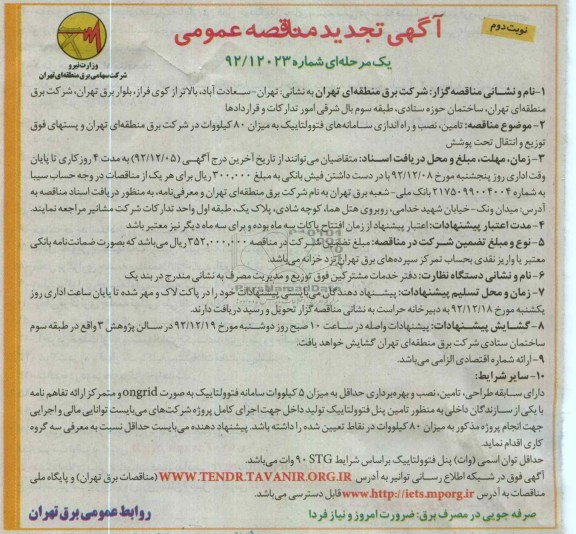 نوبت دوم
آگهی تجدید مناقصه عمومی
یک مرحله‌ای شماره ۹۲/۱۲۰۲۳
وزارت نیرو
شرکت سهامی برق منطقه‌ای تهران
۱-نام و نشانی مناقصه گزار: شرکت برق منطقه‌ای تهران به نشانی: تهران-سعادت آباد، بالاتر از کوی فراز، بلوار برق تهران، شرکت برق
منطقه‌ای تهران، ساختمان حوزه ستادی، طبقه سوم بال شرقی امور تدارکات و قراردادها
۲- موضوع مناقصه: تامین، نصب و راه اندازی سامانه‌های فتوولتاییک به میزان ۸۰ کیلووات در شرکت برق منطقه‌ای تهران و پستهای فوق
توزیع و انتقال تحت پوشش
۳- زمان، مهلت، مبلغ و محل دریافت اسناد: متقاضیان می‌توانند از تاریخ آخرین درج آگهی (۹۲/۱۲/۰۵) به مدت ۴ روز کاری تا پایان
وقت اداری روز پنجشنبه مورخ ۹۲/۱۲/۰۸ با در دست داشتن فیش بانکی به مبلغ ۳۰۰,۰۰۰ ریال برای هر یک از مناقصات در وجه حساب سیبا
به شماره ۲۱۷۵۰۹۹۰۰۴۰۰۴ بانک ملی- شعبه برق تهران به نام شرکت برق منطقه‌ای تهران و معرفی‌نامه، به منظور دریافت اسناد مناقصه به
آدرس: میدان ونک-خیابان شهید خدامی، روبروی هتل هما، کوچه شادی، پلاک یک، طبقه اول واحد تدارکات شرکت مشانیر مراجعه نمایند.
۴- مدت اعتبار پیشنهادات: اعتبار پیشنهاد از زمان افتتاح پاکات سه ماه بوده و برای سه ماه دیگر نیز معتبر باشد
۵- نوع و مبلغ تضمین شرکت در مناقصه: مبلغ تضمین شرکت در مناقصه ۳۵۲,۰۰۰,۰۰۰ ریال می‌باشد که بصورت ضمانت‌نامه بانکی
معتبر یا واریز نقدی بحساب تمرکز سپرده‌های برق تهران نزد خزانه می‌باشد.
۶- نام و نشانی دستگاه نظارت: دفتر خدمات مشترکین فوق توزیع و مدیریت مصرف به نشانی مندرج در بند یک
۷- زمان و محل تسلیم پیشنهادات: پیشنهاد دهندگان می‌بایستی پیشنهادات خود را در پاکت لاک و مهر شده تا پایان ساعت اداری روز
یکشنبه مورخ ۹۲/۱۲/۱۸ به دبیرخانه حراست به نشانی مناقصه گزار تحویل و رسید دریافت دارند.
۸- گشایش پیشنهادات: پیشنهادات واصله در ساعت ۱۰ صبح روز دوشنبه مورخ ۹۲/۱۲/۱۹ در سالن پژوهش ۳ واقع در طبقه سوم
ساختمان ستادی شرکت برق منطقه‌ای تهران گشایش خواهد یافت.
۹- ارائه شماره اقتصادی الزامی می‌باشد.
۱۰- سایر شرایط:
دارای سابقه طراحی، تامین، نصب و بهره‌برداری حداقل به میزان ۵ کیلووات سامانه فتوولتاییک به صورت ongrid و متمرکز ارائه تفاهم نامه
با یکی از سازندگان داخلی به منظور تامین پنل فتوولتاییک تولید داخل جهت اجرای کامل پروژه شرکت‌های می‌بایست توانایی مالی و اجرایی
جهت انجام پروژه مذکور به میزان ۸۰ کیلووات در نقاط تعیین شده را داشته باشد. پیشنهاد دهنده می‌بایست حداقل نسبت به معرفی سه گروه
کاری اقدام نماید.
حداقل توان اسمی (وات) پنل فتوولتاییک براساس شرایط STG ۹۰ وات می‌باشد.
آگهی فوق در شبکه اطلاع رسانی توانیر به آدرس WWW.TENDR.TAVANIR.ORG.IR (مناقصات برق تهران) و پایگاه ملی
مناقصات به آدرس http://iets.mporg.ir.www قابل دسترسی می‌باشد.
صرفه جویی در مصرف برق: ضرورت امروز و نیاز فردا
روابط عمومی برق تهران